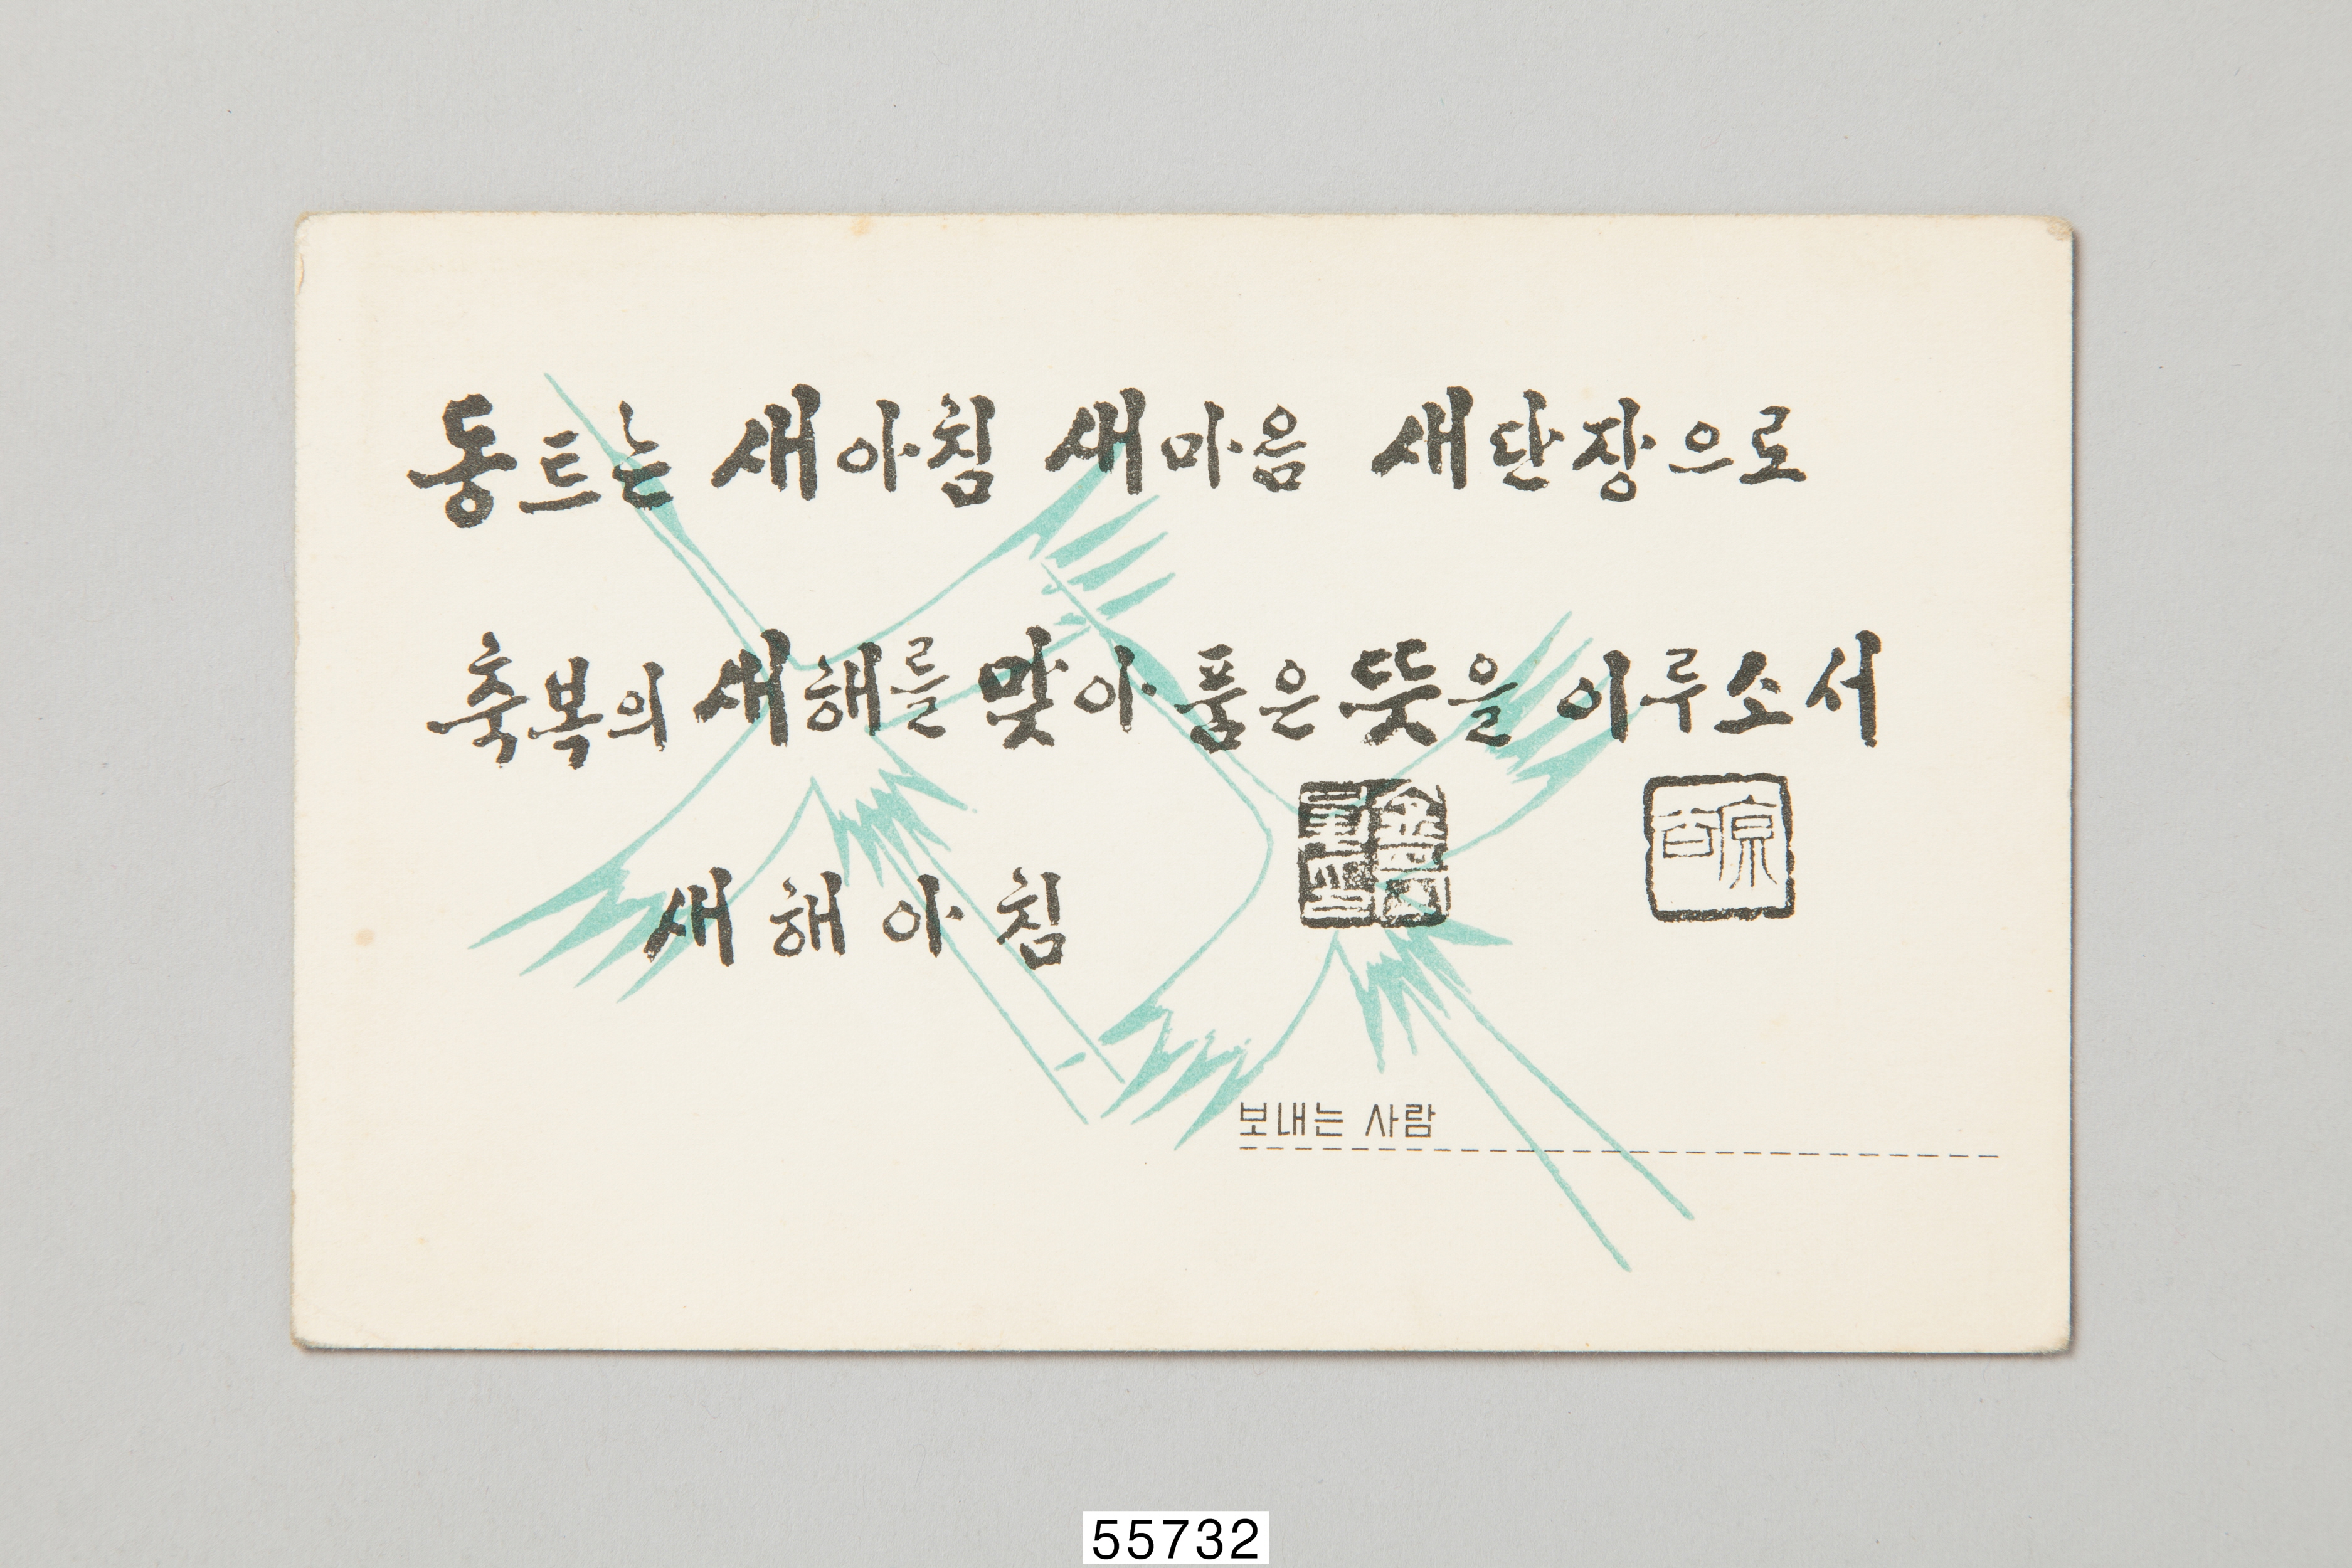 동트는 새아침 새마음 새단장으로
축복의 새해를 맞아 품은 뜻을 이루소서
새해아침
보내는 사람
55732